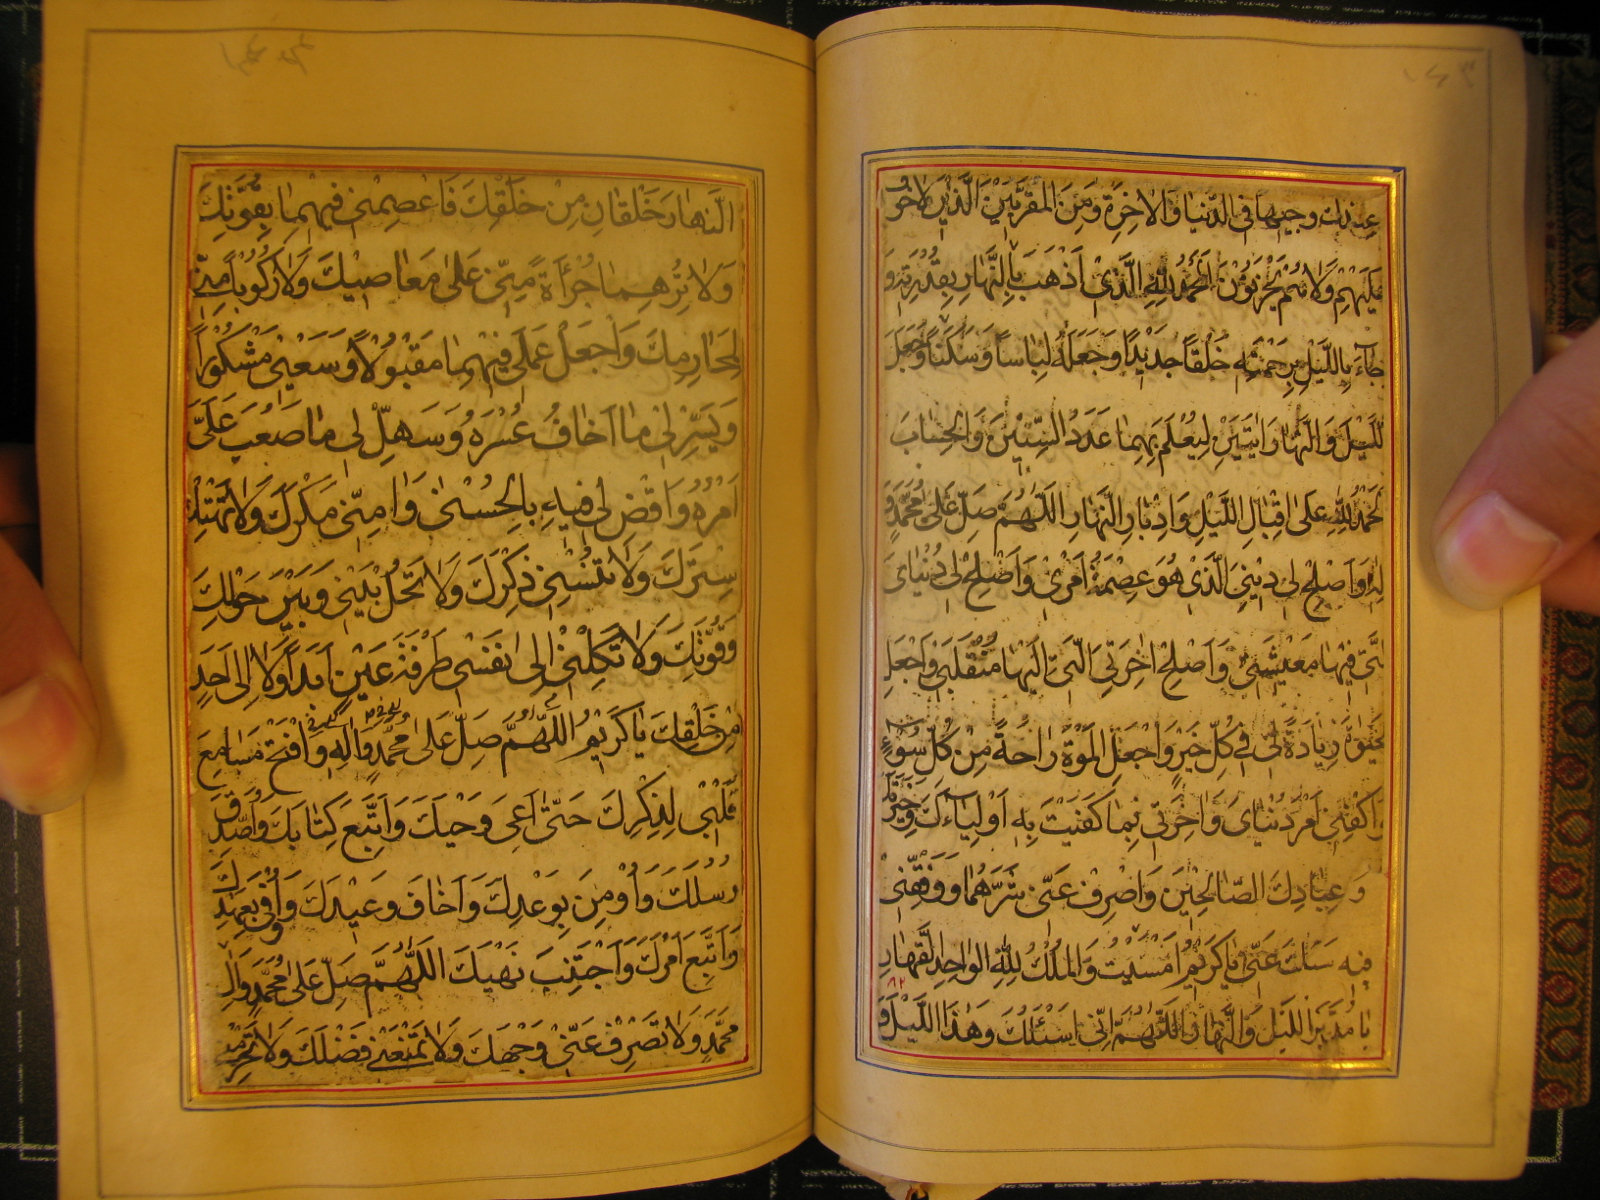 عِنْدَكَ وَجِيهًا فِي الدُّنْيَا وَالْاٰخِرَةِ وَمِنَ الْمُقَرَّبِينَ الَّذِينَ لَا خَوْفٌ
عَلَيْهِمْ وَلَا هُمْ يَحْزَنُونَ اَلْحَمْدُ لِلّٰهِ الَّذِي اَذْهَبَ بِالنَّهَارِ بِقُدْرَتِهِ وَ
جَاءَ بِاللَّيْلِ بِرَحْمَتِهِ خَلْقًا جَدِيدًا وَجَعَلَهُ لِبَاسًا وَسَكَنًا وَجَعَلَ
اللَّيْلَ وَالنَّهَارَ اٰيَتَيْنِ لِيُعْلَمَ بِهِمَا عَدَدُ السِّنِينَ وَالْحِسَابَ
اَلْحَمْدُ لِلّٰهِ عَلٰى اِقْبَالِ اللَّيْلِ وَاِدْبَارِ النَّهَارِ اَللّٰهُمَّ صَلِّ عَلٰى مُحَمَّدٍ وَ
اٰلِهِ وَاَصْلِحْ لِي دِينِيَ الَّذِي هُوَ عِصْمَةُ اَمْرِي وَاَصْلِحْ لِي دُنْيَايَ
الَّتِي فِيهَا مَعِيشَتِي وَاَصْلِحْ اٰخِرَتِي الَّتِي اِلَيْهَا مُنْقَلَبِي وَاجْعَلِ
الْحَيٰوةَ زِيَادَةً لِي فِي كُلِّ خَيْرٍ وَاجْعَلِ الْمَوْةَ رَاحَةً مِنْ كُلِّ سُوءٍ
وَاكْفِنِي اَمْرَ دُنْيَايَ وَاٰخِرَتِي بِمَا كَفَيْتَ بِهِ اَوْلِيَاءَكَ وَخِيَرَتَكَ
وَعِبَادِكَ الصَّالِحِينَ وَاصْرِفْ عَنِّي شَرَّهُمَا وَوَفِّقْنِي
يَا كَرِيمُ اَمْسَيْتُ وَالْمُلْكُ لِلّٰهِ الْوَاحِدِ الْقَهَّارِ
يَا مُدَبِّرَ اللَّيْلِ وَالنَّهَارِ اَللّٰهُمَّ اِنِّي اَسْئَلُكَ وَهٰذَا اللَّيْلَ وَ
النَّهَارَ خَلْقَانِ مِنْ خَلْقِكَ فَاعْصِمْنِي فِيهِمَا بِقُوَّتِكَ
وَلَا تُرِهِمَا جُرْأَةً مِنِّي عَلٰى مَعَاصِيكَ وَلَا رُكُوبًا مِنِّي
لِمَحَارِمِكَ وَاجْعَلْ عَمَلِي فِيهِمَا مَقْبُولًا وَسَعْيِي مَشْكُورًا
وَيَسِّرْ لِي مَا اَخَافُ عُسْرَهُ وَسَهِّلْ لِي مَا صَعُبَ عَلَيَّ
اَمْرُهُ وَاقْضِ لِي فِيهِ بِالْحُسْنٰى وَاٰمِنِّي مَكْرَكَ وَلَا تَهْتِكْ
سِتْرَكَ وَلَا تُنْسِنِي ذِكْرَكَ وَلَا تَحُلْ بَيْنِي وَبَيْنَ حَوْلِكَ
وَقُوَّتِكَ وَلَا تَكِلْنِي اِلٰى نَفْسِي طَرْفَةَ عَيْنٍ اَبَدًا وَلَا اِلٰى اَحَدٍ
مِنْ خَلْقِكَ يَا كَرِيمُ اَللّٰهُمَّ صَلِّ عَلٰى مُحَمَّدٍ وَاٰلِهِ وَافْتَحْ مَسَامِعَ
قَلْبِي لِذِكْرِكَ حَتّٰى اَعِيَ وَحْيَكَ وَاَتَّبِعَ كِتَابَكَ وَاُصَدِّقَ
رُسُلَكَ وَاُوْمِنَ بِوَعْدِكَ وَاَخَافَ وَعِيدَكَ وَاُوفِيَ بِعَهْدِكَ
وَاَتَّبِعَ اَمْرَكَ وَاَجْتَنِبَ نَهْيَكَ اَللّٰهُمَّ صَلِّ عَلٰى مُحَمَّدٍ وَاٰلِ
مُحَمَّدٍ وَلَا تَصْرِفْ عَنِّي وَجْهَكَ وَلَا تَمْنَعْنِي فَضْلَكَ وَلَا تَحْرِمْنِي